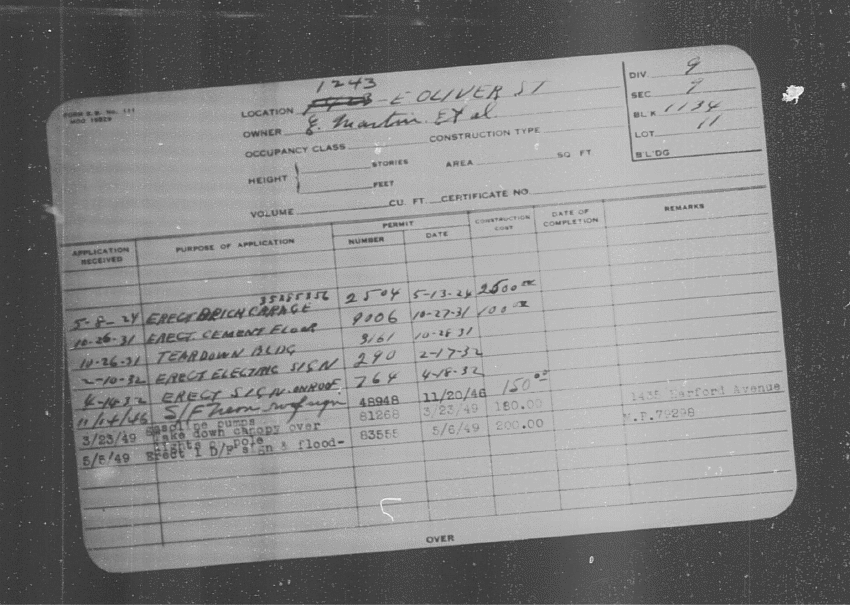 FORM B.B. No. 111
1243
LOCATION E OLIVER ST
OWNER E. Martin. Et al.
OCCUPANCY CLASS CONSTRUCTION TYPE
HEIGHT STORIES AREA SQ FT.
FEET
VOLUME CU. FT. CERTIFICATE NO.
DIV. 9
SEC 9
BLK 1134
LOT 11
B'LDG
APPLICATION RECEIVED PURPOSE OF APPLICATION PERMIT NUMBER DATE CONSTRUCTION COST DATE OF COMPLETION REMARKS
5-8-24 ERECT BRICK GARAGE 2504 5-13-24 2500
10-26-31 ERECT CEMENT FLOOR 9006 10-27-31 100
10-26-31 TEARDOWN BLDG 9161 10-28 31
2-10-32 ERECT ELECTRIC SIGN 290 2-17-32
4-14-32 ERECT SIGN ON ROOF 764 4-18-32
11/14/46 S/F neon roof sign 48948 11/20/46 150.00
3/23/49 Take down canopy over gasoline pumps 81268 3/23/49 150.00 1435 Harford Avenue
5/5/49 Erect 1 D/F sign & flood-lights on pole 83555 5/6/49 200.00 W.P.79298
OVER